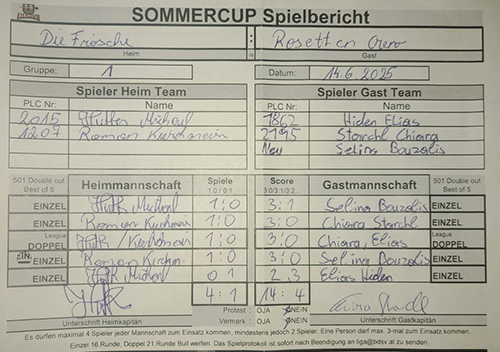 SOMMERCUP Spielbericht
Die Frösche : Rosetten Oero
Heim vs Gast
Gruppe: 1 Datum: 14.6.2025
Spieler Heim Team Spieler Gast Team
PLC Nr: Name PLC Nr: Name
2015 Hutter Michael 1862 Hiden Elias
1207 Roman Kirchmeir 2195 Storchl Chiara
Neu Selina Bouzalis
501 Double out Best of 5 Heimmannschaft Spiele 1:0 / 0:1 Score 3:0/3:1/3:2. Gastmannschaft 501 Double out Best of 5
EINZEL Hutt Michael 1:0 3:1 Selina Bouzalis EINZEL
EINZEL Roman Kirchmeir 1:0 3:0 Chiara Storchl EINZEL
League DOPPEL Hutt / Kirchmeir 1:0 3:0 Chiara, Elias League DOPPEL
EIN EINZEL Roman Kirchm. 1:0 3:0 Selina Bouzalis EINZEL
EINZEL Hutt Michael 0 1 2:3 Elias Hiden EINZEL
4:1 14:4
Protest : OJA ONEIN
Unterschrift Heimkapitän Vermerk : OJA ONEIN Unterschrift Gastkapitän
Es dürfen maximal 4 Spieler jeder Mannschaft zum Einsatz kommen, mindestens jedoch 2 Spieler. Eine Person darf max. 3-mal zum Einsatz kommen.
Einzel 16 Runde, Doppel 21 Runde Bull werfen. Das Spielprotokoll ist sofort nach Beendigung an liga@bdsv.at zu senden.